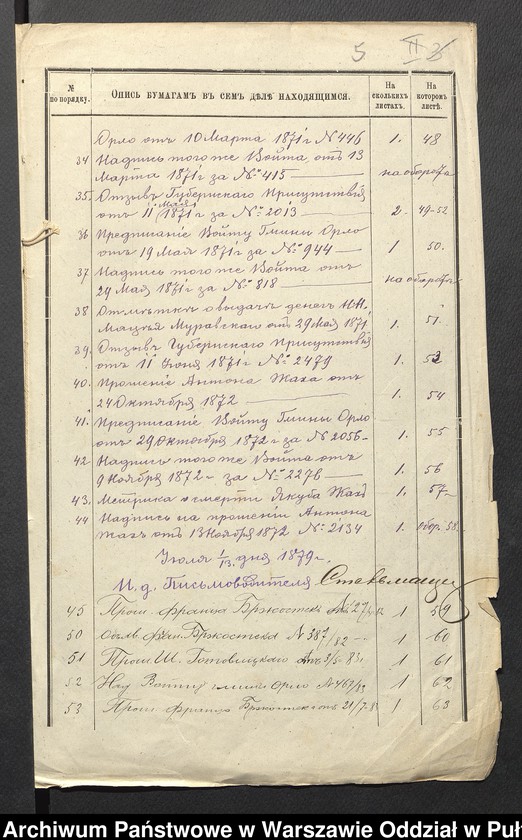 5 II
№ по порядку. Опись бумагамъ въ семъ дѣлѣ находящимся. На сколькихъ листахъ. На которомъ листѣ.
Орло отъ 10 Марта 1871 г № 446 1. 48
34 Надпись того же Войта отъ 13
Марта 1871 г за № 415 — на оборотѣ
35. Отзывъ Губернскаго Присутствія
отъ 11 Мая 1871 г за № 2013 — 2. 49-52
36 Предписаніе Войту Гмины Орло
отъ 19 Мая 1871 г за № 944 — 1 50.
37 Надпись того же Войта отъ
29 Мая 1871 г за № 818 — на оборотѣ
38 Отмѣтка о выдачѣ денегъ
Муравскаго отъ 29 Мая 1871 1. 51.
39. Отзывъ Губернскаго Присутствія
отъ 11 Іюня 1871 г № 2479 1. 53
40. Прошеніе Антона Жака отъ
24 Октября 1872 — 1. 54
41. Предписаніе Войту Гмины Орло
отъ 29 Октября 1872 г за № 2056 - 1. 55
42 Надпись того же Войта отъ
9 Ноября 1872 г за № 2276 — 1. 56
43. Метрика о смерти Якуба Жака 1. 57
44 Надпись на прошеніи Антона
Жака отъ 13 Ноября 1872 № 2134 1. Обор. 58.
Іюля 1/13. дня 1879 г.
И. д. Письмоводителя
45 Прош. Франца 1 59
50 Объяв. № 387/82 - 1 60
51 Прош. Ш. 1 61
52 Над Войту гмины Орло № 1 62
53 Прош. Франца 1 63
Archiwum Państwowe w Warszawie Oddział w Puł